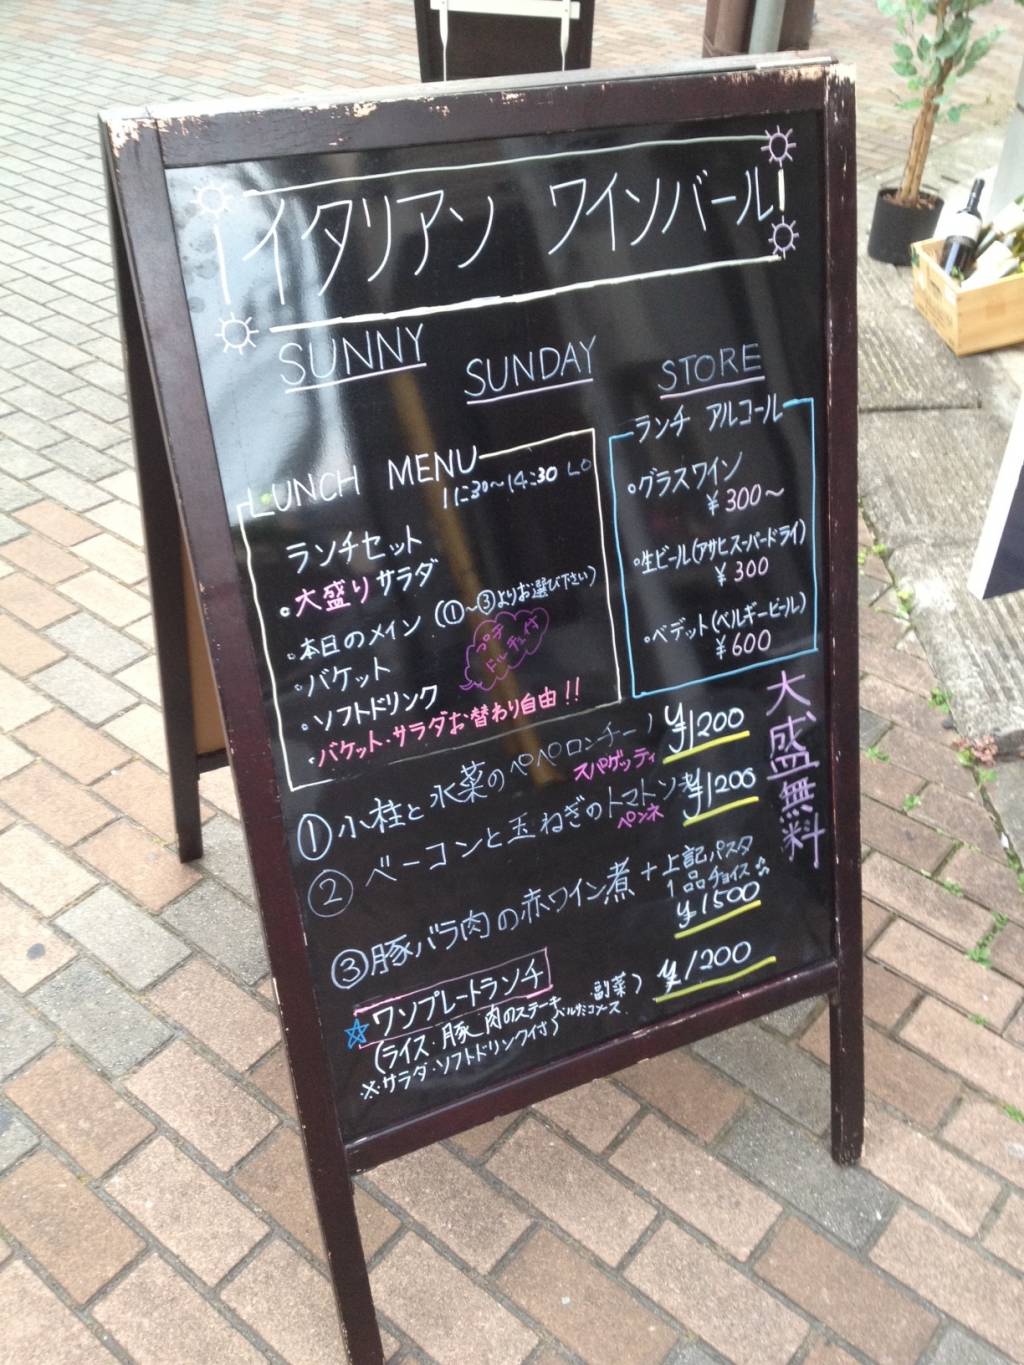 イタリアン ワインバール
SUNNY SUNDAY STORE
LUNCH MENU
11:30〜14:30 LO
ランチセット
。大盛りサラダ
。本日のメイン(①〜③よりお選び下さい)
。バケット
。ソフトドリンク
プチ
ドルチェ付
バケット・サラダお替わり自由!!
ランチ アルコール
。グラスワイン
¥300〜
。生ビール(アサヒスーパードライ)
¥300
。ベデット(ベルギービール)
¥600
① 小柱と水菜のペペロンチーノ ¥1200
スパゲッティ
② ベーコンと玉ねぎのトマトソース ¥1200
ペンネ
③ 豚バラ肉の赤ワイン煮 + 上記パスタ
1品チョイス
¥1500
大盛無料
☆ワンプレートランチ ¥1200
(ライス・豚肉のステーキ 副菜)
※サラダ・ソフトドリンク付)